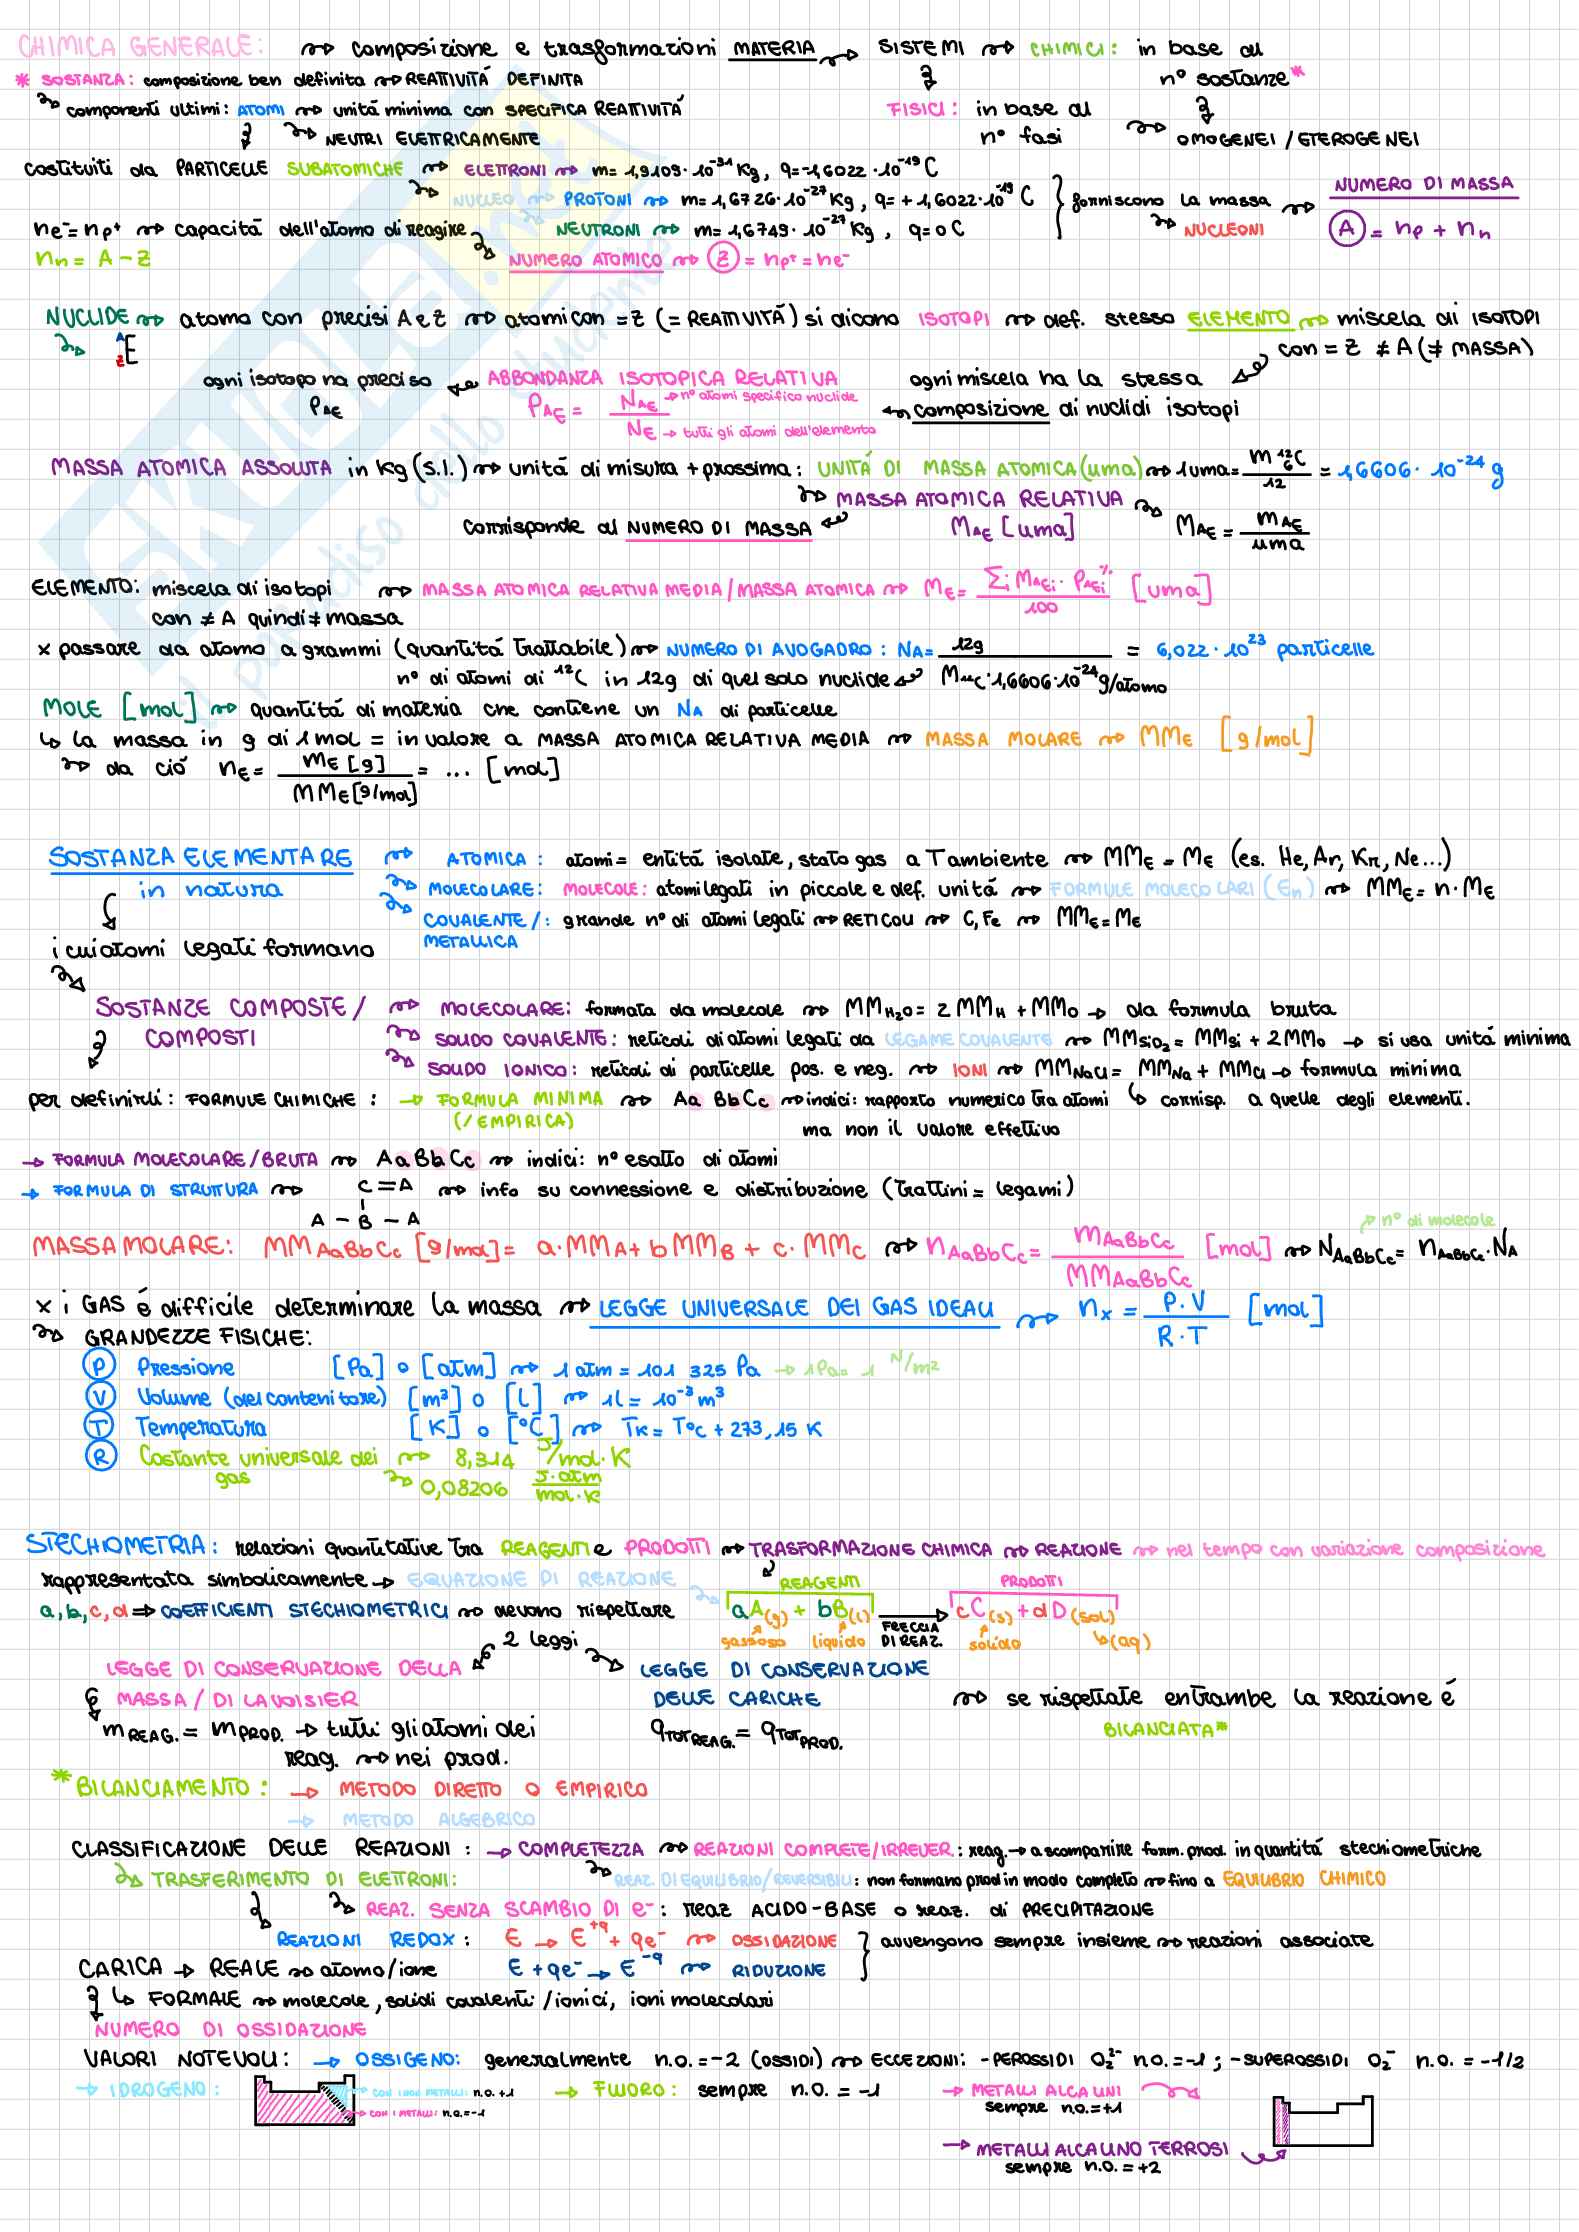 CHIMICA GENERALE: ⇝ composizione e trasformazioni MATERIA ⇝ SISTEMI ⇝ CHIMICI: in base al
n° sostanze*
* SOSTANZA: composizione ben definita ⇝ REATTIVITÀ DEFINITA
componenti ultimi: ATOMI ⇝ unità minima con SPECIFICA REATTIVITÀ
FISICI: in base al
n° fasi ⇝ OMOGENEI / ETEROGENEI
NEUTRI ELETTRICAMENTE
costituiti da PARTICELLE SUBATOMICHE ⇝ ELETTRONI ⇝ m= 1,9109·10⁻³¹ Kg, q=-1,6022·10⁻¹⁹ C
NUCLEO ⇝ PROTONI ⇝ m=1,6726·10⁻²⁷ Kg, q=+1,6022·10⁻¹⁹ C } forniscono la massa ⇝ NUMERO DI MASSA
ne⁻=np⁺ ⇝ capacità dell'atomo di reagire NEUTRONI ⇝ m=1,6749·10⁻²⁷ Kg, q=0 C NUCLEONI A = np + nn
nn = A-Z NUMERO ATOMICO ⇝ Z = np⁺=ne⁻
NUCLIDE ⇝ atomo con precisi A e Z ⇝ atomi con =Z (=REATTIVITÀ) si dicono ISOTOPI ⇝ def. stesso ELEMENTO ⇝ miscela di ISOTOPI
A Z E con =Z ≠A (≠MASSA)
ogni isotopo ha preciso ABBONDANZA ISOTOPICA RELATIVA ogni miscela ha la stessa
P AE P AE = N AE → n° atomi specifico nuclide / N E → tutti gli atomi dell'elemento composizione di nuclidi isotopi
MASSA ATOMICA ASSOLUTA in Kg (S.I.) ⇝ unità di misura + prossima: UNITÀ DI MASSA ATOMICA (uma) ⇝ 1uma= m ¹²₆C / 12 = 1,6606·10⁻²⁴ g
MASSA ATOMICA RELATIVA
corrisponde al NUMERO DI MASSA M AE [uma] M AE = m AE / uma
ELEMENTO: miscela di isotopi ⇝ MASSA ATOMICA RELATIVA MEDIA / MASSA ATOMICA ⇝ M E = Σi M AEi · P AEi % / 100 [uma]
con ≠ A quindi ≠ massa
x passare da atomo a grammi (quantità trattabile) ⇝ NUMERO DI AVOGADRO: NA= 12g / M ¹²C·1,6606·10⁻²⁴ g/atomo = 6,022·10²³ particelle
n° di atomi di ¹²C in 12g di quel solo nuclide
MOLE [mol] ⇝ quantità di materia che contiene un NA di particelle
↳ la massa in g di 1 mol = in valore a MASSA ATOMICA RELATIVA MEDIA ⇝ MASSA MOLARE ⇝ MM E [g/mol]
da ciò n E = m E [g] / MM E [g/mol] = ... [mol]
SOSTANZA ELEMENTARE ⇝ ATOMICA: atomi= entità isolate, stato gas a T ambiente ⇝ MM E = M E (es. He, Ar, Kr, Ne...)
in natura MOLECOLARE: MOLECOLE: atomi legati in piccole e def. unità ⇝ FORMULE MOLECOLARI (En) ⇝ MM E = n·M E
COVALENTE/: grande n° di atomi legati ⇝ RETICOLI ⇝ C, Fe ⇝ MM E = M E
METALLICA
i cui atomi legati formano
SOSTANZE COMPOSTE/ ⇝ MOLECOLARE: formata da molecole ⇝ MM H₂O = 2 MM H + MM O → da formula bruta
COMPOSTI SOLIDO COVALENTE: reticoli di atomi legati da LEGAME COVALENTE ⇝ MM SiO₂ = MM Si + 2MM O → si usa unità minima
SOLIDO IONICO: reticoli di particelle pos. e neg. ⇝ IONI ⇝ MM NaCl = MM Na + MM Cl → formula minima
per definirli: FORMULE CHIMICHE: → FORMULA MINIMA ⇝ Aa Bb Cc ⇝ indici: rapporto numerico tra atomi ↳ corrisp. a quelle degli elementi.
(/EMPIRICA) ma non il valore effettivo
→ FORMULA MOLECOLARE/BRUTA ⇝ AaBbCc ⇝ indici: n° esatto di atomi
→ FORMULA DI STRUTTURA ⇝ C=A ⇝ info su connessione e distribuzione (trattini = legami)
A - B - A
n° di molecole
MASSA MOLARE: MM AaBbCc [g/mol] = a·MM A + b MM B + c·MM C ⇝ n AaBbCc = m AaBbCc / MM AaBbCc [mol] ⇝ N AaBbCc = n AaBbCc · NA
x i GAS é difficile determinare la massa ⇝ LEGGE UNIVERSALE DEI GAS IDEALI ⇝ n x = P·V / R·T [mol]
GRANDEZZE FISICHE:
P Pressione [Pa] o [atm] ⇝ 1 atm = 101 325 Pa → 1Pa = 1 N/m²
V Volume (del contenitore) [m³] o [l] ⇝ 1l = 10⁻³ m³
T Temperatura [K] o [°C] ⇝ TK = T°C + 273,15 K
R Costante universale dei ⇝ 8,314 J/mol·K
gas 0,08206 J·atm / mol·K
STECHIOMETRIA: relazioni quantitative tra REAGENTI e PRODOTTI ⇝ TRASFORMAZIONE CHIMICA ⇝ REAZIONE ⇝ nel tempo con variazione composizione
rappresentata simbolicamente → EQUAZIONE DI REAZIONE REAGENTI PRODOTTI
a, b, c, d ⇒ COEFFICIENTI STECHIOMETRICI ⇝ devono rispettare aA(g) + bB(l) → cC(s) + dD(sol)
2 leggi gassoso liquido FRECCIA DI REAZ. solido ↳(aq)
LEGGE DI CONSERVAZIONE DELLA LEGGE DI CONSERVAZIONE
MASSA / DI LAVOISIER DELLE CARICHE ⇝ se rispettate entrambe la reazione é
m REAG. = m PROD. → tutti gli atomi dei q TOT REAG. = q TOT PROD. BILANCIATA*
reag. ⇝ nei prod.
* BILANCIAMENTO: → METODO DIRETTO O EMPIRICO
→ METODO ALGEBRICO
CLASSIFICAZIONE DELLE REAZIONI: → COMPLETEZZA ⇝ REAZIONI COMPLETE/IRREVER.: reag. → a scomparire form. prod. in quantità stechiometriche
TRASFERIMENTO DI ELETTRONI: REAZ. DI EQUILIBRIO/REVERSIBILI: non formano prod in modo completo ⇝ fino a EQUILIBRIO CHIMICO
REAZ. SENZA SCAMBIO DI e⁻: reaz ACIDO-BASE o reaz. di PRECIPITAZIONE
REAZIONI REDOX: E → E⁺q + qe⁻ ⇝ OSSIDAZIONE } avvengono sempre insieme ⇝ reazioni associate
CARICA → REALE ⇝ atomo/ione E + qe⁻ → E⁻q ⇝ RIDUZIONE
↳ FORMALE ⇝ molecole, solidi covalenti/ionici, ioni molecolari
NUMERO DI OSSIDAZIONE
VALORI NOTEVOLI: → OSSIGENO: generalmente n.o. = -2 (OSSIDI) ⇝ ECCEZIONI: -PEROSSIDI O₂²⁻ n.o. = -1; -SUPEROSSIDI O₂⁻ n.o. = -1/2
→ IDROGENO: CON I NON METALLI: n.o. +1 → FLUORO: sempre n.o. = -1 → METALLI ALCALINI
CON I METALLI: n.o. = -1 sempre n.o. = +1
→ METALLI ALCALINO TERROSI
sempre n.o. = +2
SKUOLA.net
il paradiso dello studente